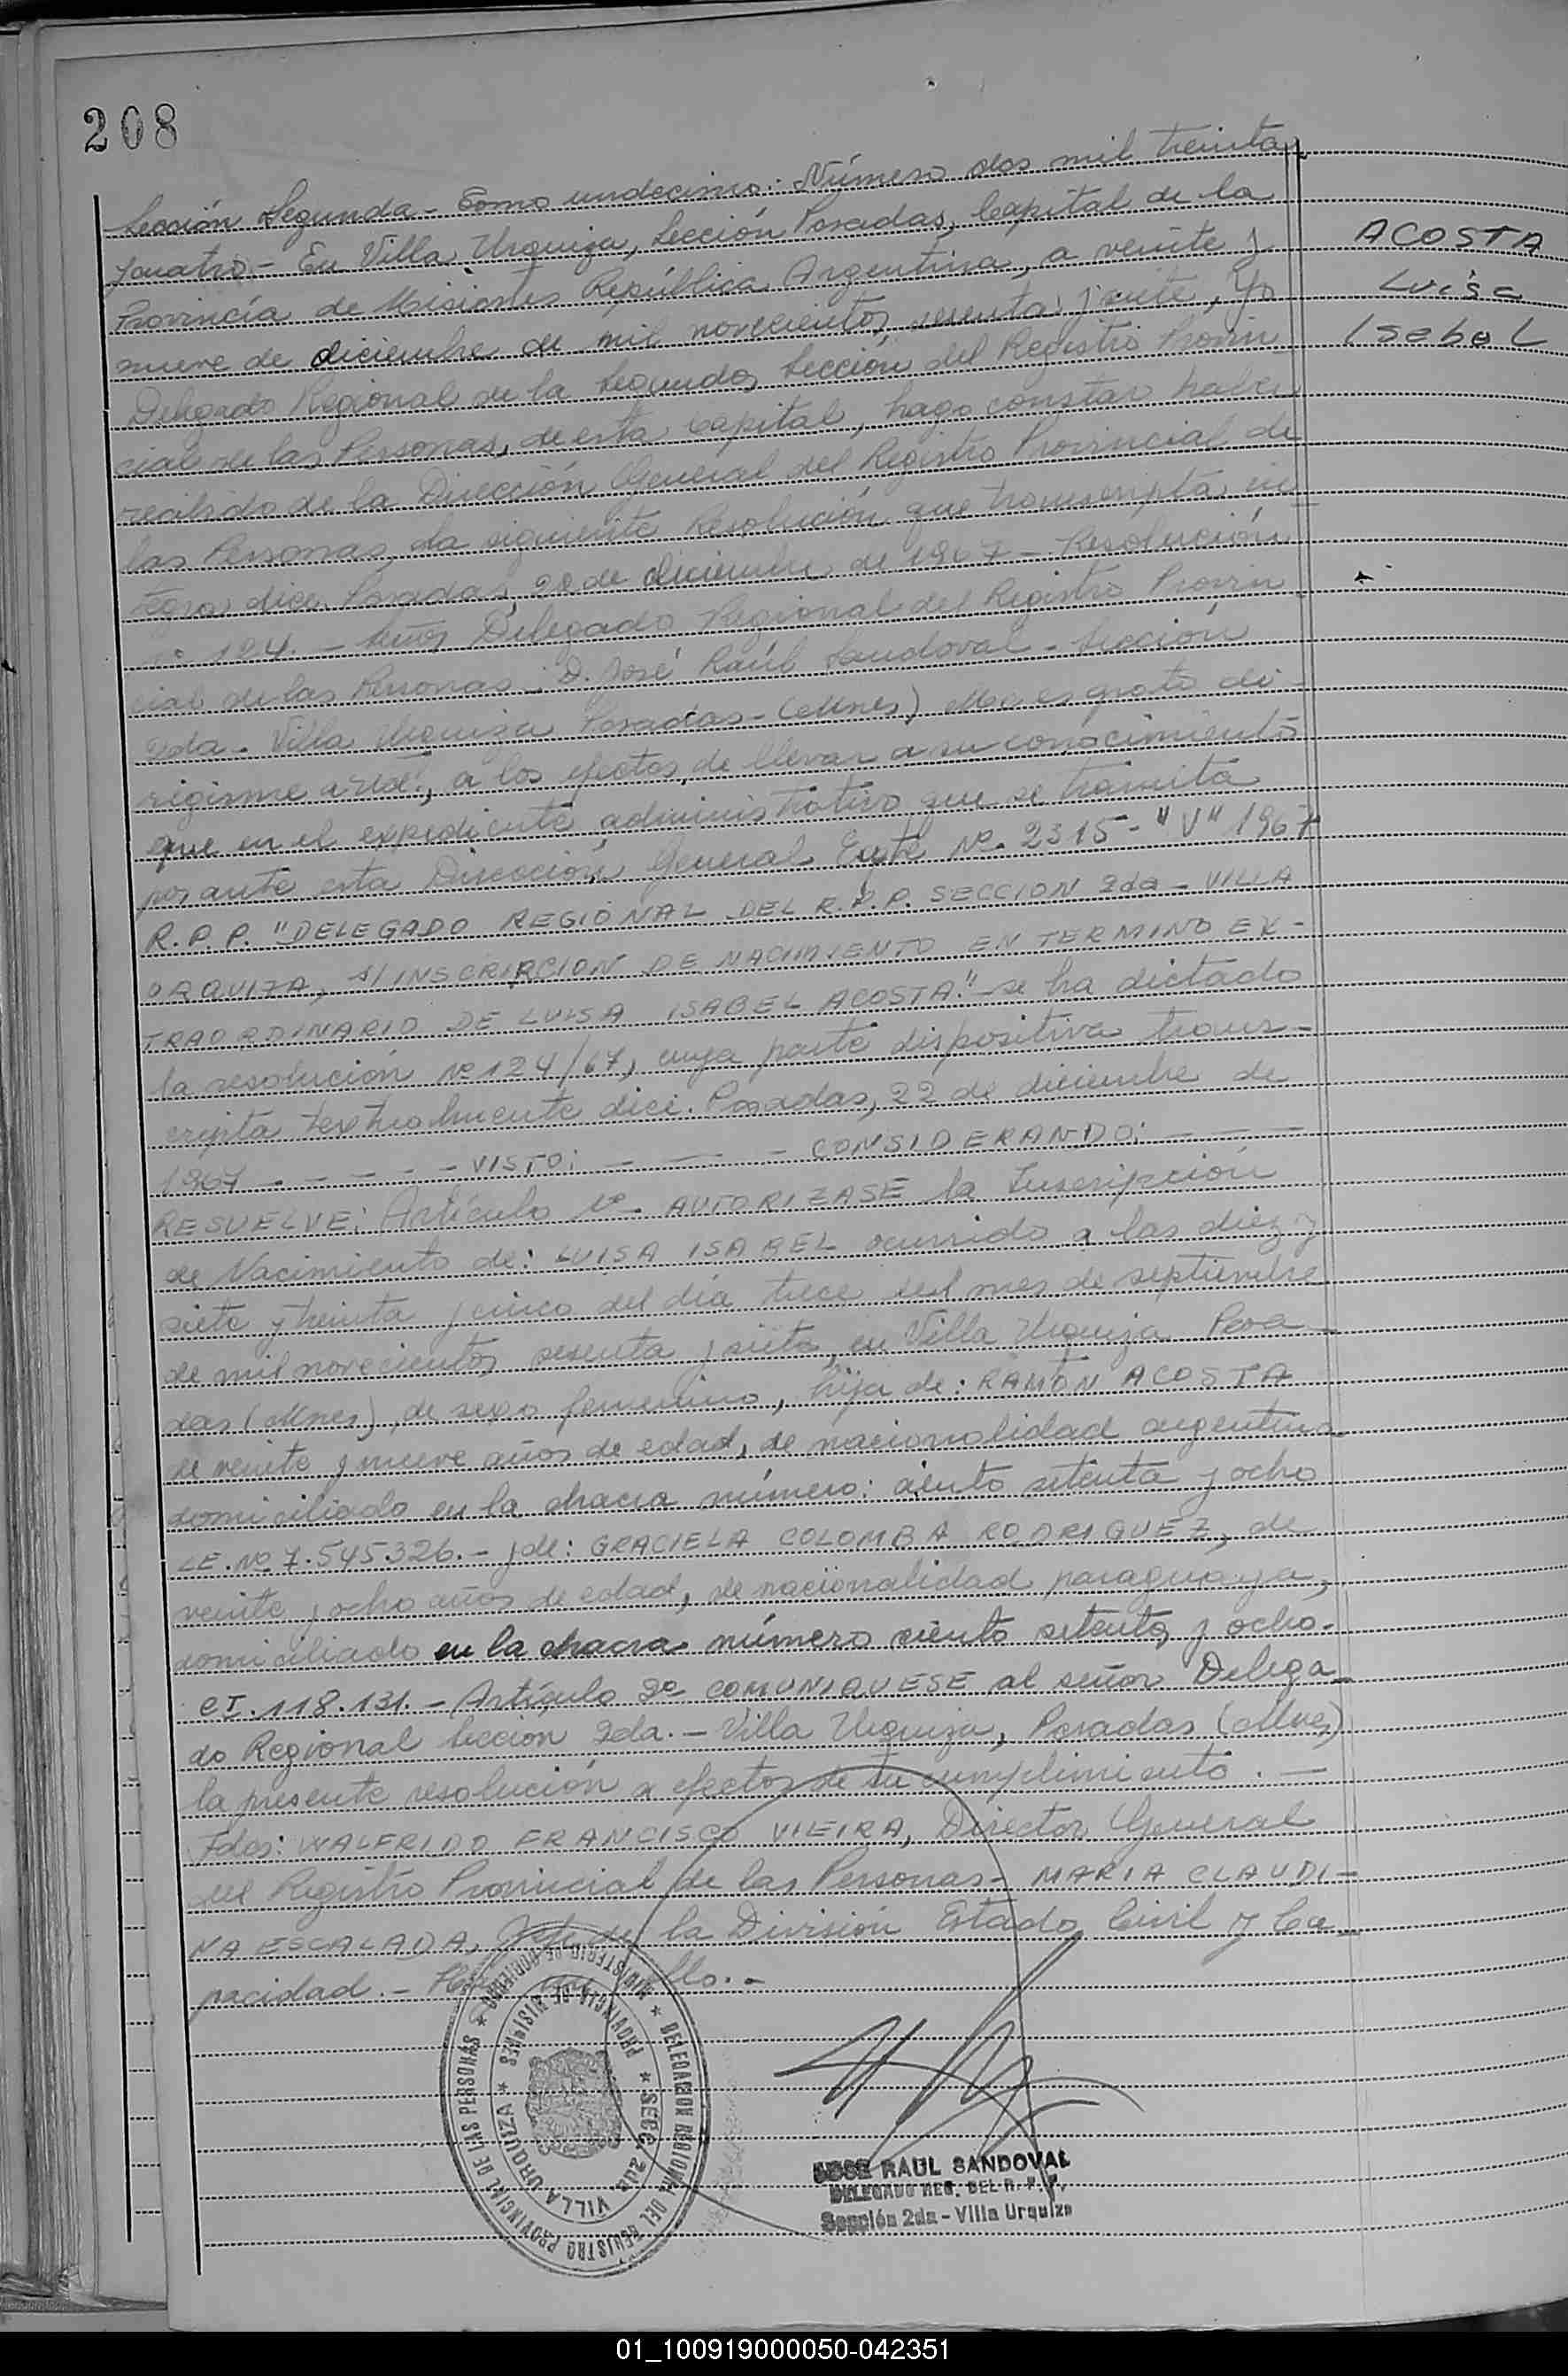 208
Sección Segunda - Tomo undecimo: Número dos mil treinta
y cuatro. - En Villa Urquiza, Sección Posadas, Capital de la
Provincia de Misiones República Argentina, a veinte y
nueve de diciembre de mil novecientos sesenta y siete, Yo
Delegado Regional de la Segunda Sección del Registro Provin
cial de las Personas, de esta Capital, hago constar haber
recibido de la Dirección General del Registro Provincial de
las Personas la siguiente Resolución que transcripta ín
tegra dice. Posadas, 22 de diciembre de 1967 - Resolución
nº 124. - Señor Delegado Regional del Registro Provin
cial de las Personas. D. José Raúl Sandoval - Sección
2da - Villa Urquiza Posadas - (Mnes) Me es grato di-
rigirme a Ud., a los efectos de llevar a su conocimiento
que en el expediente administrativo que se tramita
por ante esta Dirección General Expte Nº 2315 - "V" 1967
R.P.P. "DELEGADO REGIONAL DEL R.P.P. SECCION 2da - VILLA
URQUIZA, S/ INSCRIPCION DE NACIMIENTO EN TERMINO EX-
TRAORDINARIO DE LUISA ISABEL ACOSTA." - se ha dictado
la resolución Nº 124/67, cuya parte dispositiva trans-
cripta textualmente dice. Posadas, 22 de diciembre de
1967 - - - - VISTO: - - - CONSIDERANDO: - - -
RESUELVE: Artículo 1º - AUTORIZASE la Inscripción
de Nacimiento de: LUISA ISABEL ocurrido a las diez y
siete y treinta y cinco del día trece del mes de septiembre
de mil novecientos sesenta y siete en Villa Urquiza Posa-
das (Mnes), de sexo femenino, hija de: RAMÓN ACOSTA
de veinte y nueve años de edad, de nacionalidad argentina
domiciliado en la chacra número: ciento setenta y ocho
LE. Nº 7.545.326. - y de: GRACIELA COLOMBA RODRIGUEZ, de
veinte y ocho años de edad, de nacionalidad paraguaya,
domiciliado en la chacra número ciento setenta y ocho.
CI. 118.131. - Artículo 2º COMUNIQUESE al señor Delega-
do Regional Sección 2da. - Villa Urquiza, Posadas (Mnes)
la presente resolución a efectos de su cumplimiento. -
Fdos: WALFRIDO FRANCISCO VIEIRA, Director General
del Registro Provincial de las Personas - MARIA CLAUDI-
NA ESCALADA, Jefe de la División Estado Civil y Ca-
pacidad. -
ACOSTA
Luisa
Isabel
DELEGACION REGIONAL DEL REGISTRO PROVINCIAL DE LAS PERSONAS * MINISTERIO DE GOBIERNO *
PROVINCIA DE MISIONES * SECC. 2da. VILLA URQUIZA *
JOSE RAUL SANDOVAL
DELEGADO REG. DEL R. P. P.
Sección 2da - Villa Urquiza
01_100919000050-042351